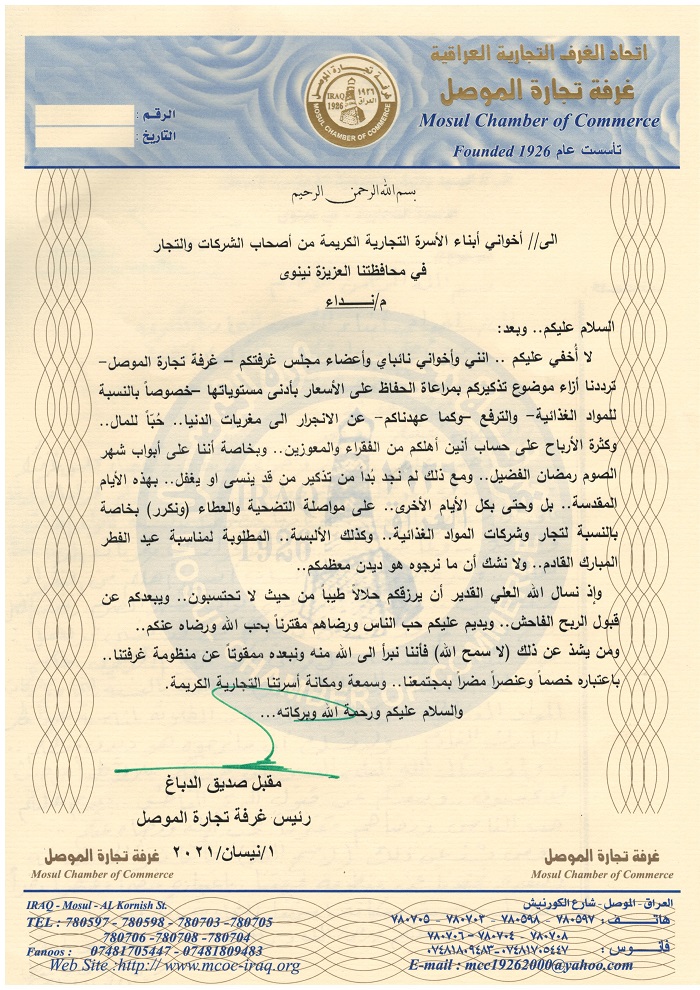 اتحاد الغرف التجارية العراقية
غرفة تجارة الموصل
Mosul Chamber of Commerce
Founded 1926 تأسست عام
غرفة تجارة الموصل
IRAQ 1926
١٩٢٦ العراق
MOSUL CHAMBER OF COMMERCE
الرقم :
التاريخ :
بسم الله الرحمن الرحيم
الى// أخواني أبناء الأسرة التجارية الكريمة من أصحاب الشركات والتجار
في محافظتنا العزيزة نينوى
م/نــــداء
السلام عليكم.. وبعد:
لا أُخفي عليكم .. انني وأخواني نائباي وأعضاء مجلس غرفتكم – غرفة تجارة الموصل-
ترددنا أزاء موضوع تذكيركم بمراعاة الحفاظ على الأسعار بأدنى مستوياتها –خصوصاً بالنسبة
للمواد الغذائية- والترفع –وكما عهدناكم- عن الانجرار الى مغريات الدنيا.. حُبّاً للمال..
وكثرة الأرباح على حساب أنين أهلكم من الفقراء والمعوزين.. وبخاصة أننا على أبواب شهر
الصوم رمضان الفضيل.. ومع ذلك لم نجد بُداً من تذكير من قد ينسى او يغفل.. بهذه الأيام
المقدسة.. بل وحتى بكل الأيام الأخرى.. على مواصلة التضحية والعطاء (ونكرر) بخاصة
بالنسبة لتجار وشركات المواد الغذائية.. وكذلك الألبسة.. المطلوبة لمناسبة عيد الفطر
المبارك القادم.. ولا نشك أن ما نرجوه هو ديدن معظمكم..
وإذ نسال الله العلي القدير أن يرزقكم حلالاً طيباً من حيث لا تحتسبون.. ويبعدكم عن
قبول الربح الفاحش.. ويديم عليكم حب الناس ورضاهم مقترناً بحب الله ورضاه عنكم..
ومن يشذ عن ذلك (لا سمح الله) فأننا نبرأ الى الله منه ونبعده ممقوتاً عن منظومة غرفتنا..
باعتباره خصماً وعنصراً مضراً بمجتمعنا.. وسمعة ومكانة أسرتنا التجارية الكريمة.
والسلام عليكم ورحمة الله وبركاته...
مقبل صديق الدباغ
رئيس غرفة تجارة الموصل
١/نيسان/٢٠٢١
غرفة تجارة الموصل
Mosul Chamber of Commerce
غرفة تجارة الموصل
Mosul Chamber of Commerce
العراق - الموصل - شارع الكورنيش
هاتف : ٧٨٠٥٩٧ - ٧٨٠٥٩٨ - ٧٨٠٧٠٣ - ٧٨٠٧٠٥
٧٨٠٧٠٨ - ٧٨٠٧٠٤ - ٧٨٠٧٠٦
فانوس : ٠٧٤٨١٧٠٥٤٤٧-٠٧٤٨١٨٠٩٤٨٣
E-mail : mcc19262000@yahoo.com
IRAQ - Mosul - AL Kornish St.
TEL : 780597 - 780598 - 780703 -780705
780706 -780708 -780704
Fanoos : 07481705447 - 07481809483
Web Site :http// www.mcoc-iraq.org